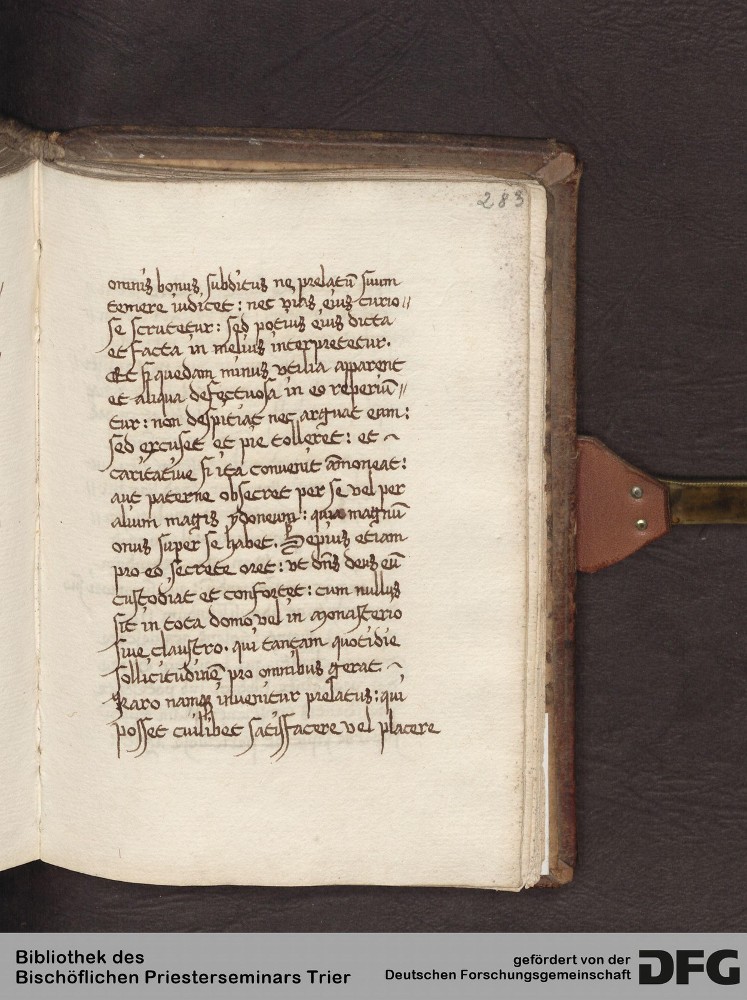 283
omnis bonus subditus ne prelatū suum
temere iudicet: nec vias eius curio//
se scrutetur: sed potius eius dicta
et facta in melius interpretetur.
Et si quedam minus vtilia apparent
et aliqua defectuosa in eo reperiū//
tur: non despiciat nec arguat eum:
sed excuset et pie tolleret: et ~
caritatiue si ita conuenit āmoneat:
aut paterne obsecret per se vel per
alium magis ydoneum: quia magnū
onus super se habet. Sepius etiam
pro eo secrete oret: vt dn̄s deus eū
custodiat et confortet: cum nullus
sit in tota domo vel in monasterio
siue claustro. qui tantam quotidie
sollicitudinē pro omnibus gerat. ~
Raro namqꝫ inuenitur prelatus: qui
posset cuilibet satisfacere vel placere
Bibliothek des
Bischöflichen Priesterseminars Trier
gefördert von der
Deutschen Forschungsgemeinschaft
DFG